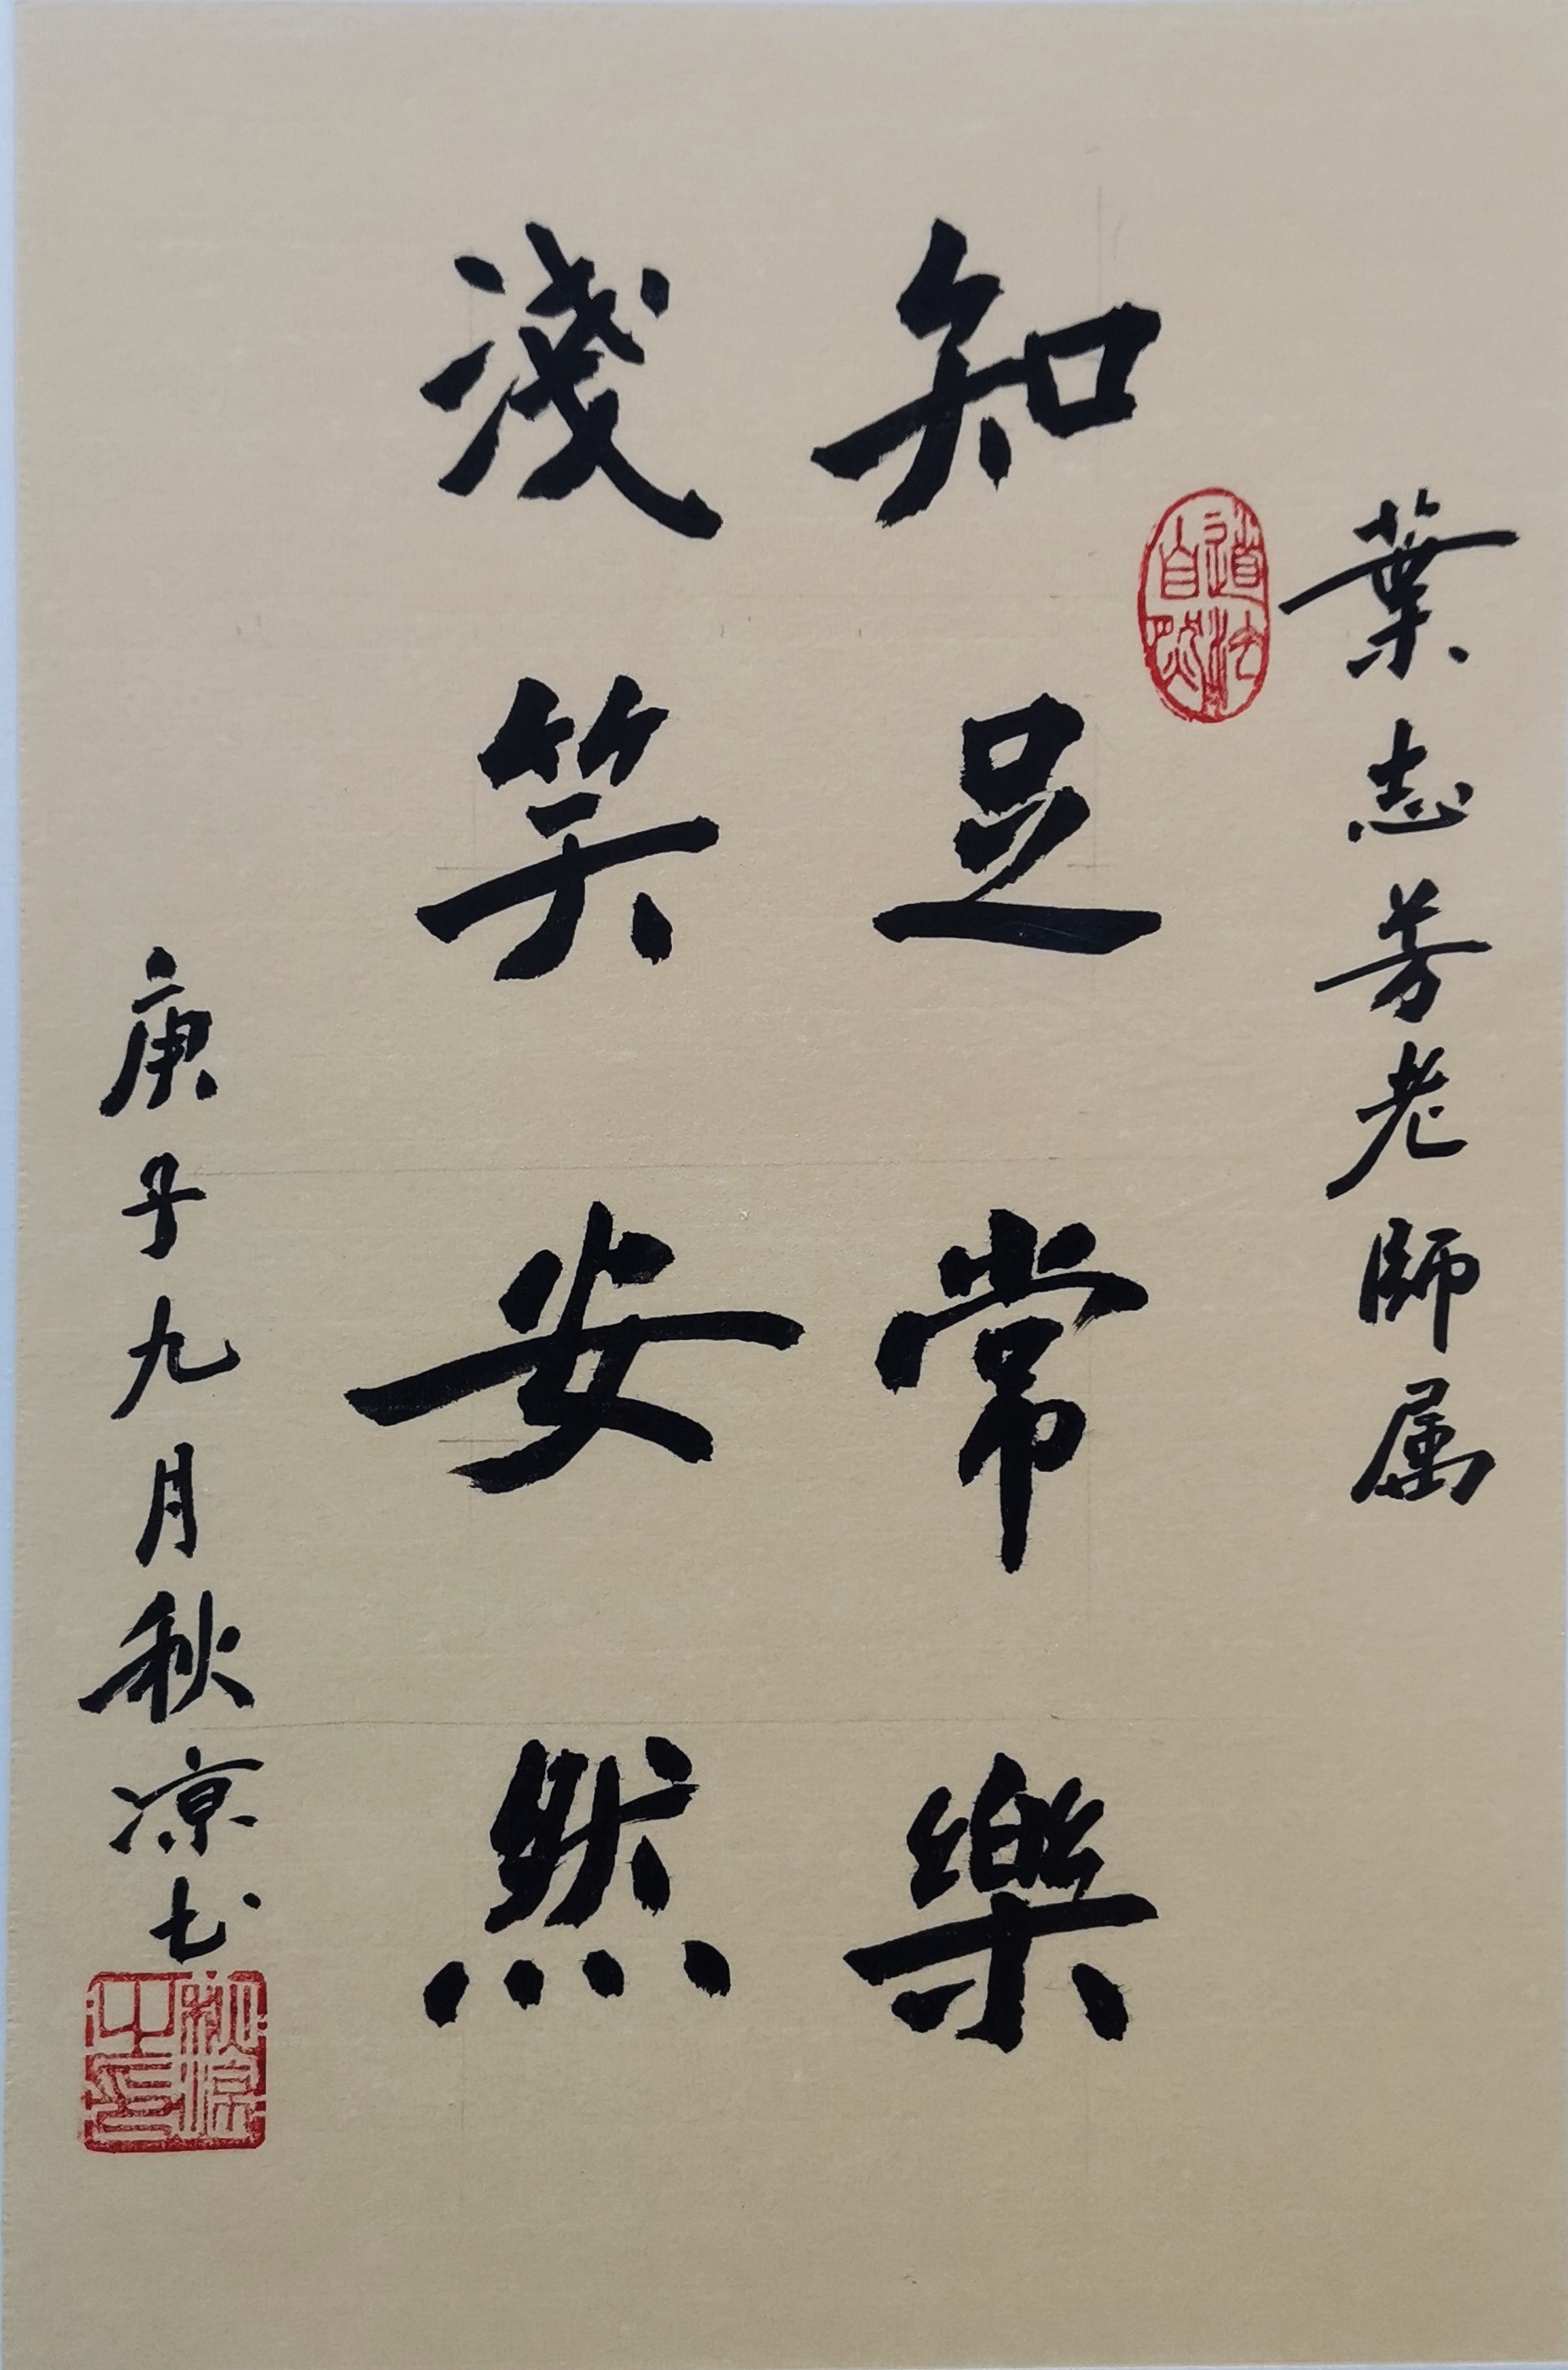 葉志芳老師属
道法自然
知足常樂
淺笑安然
庚子九月秋凉书
秋凉之印